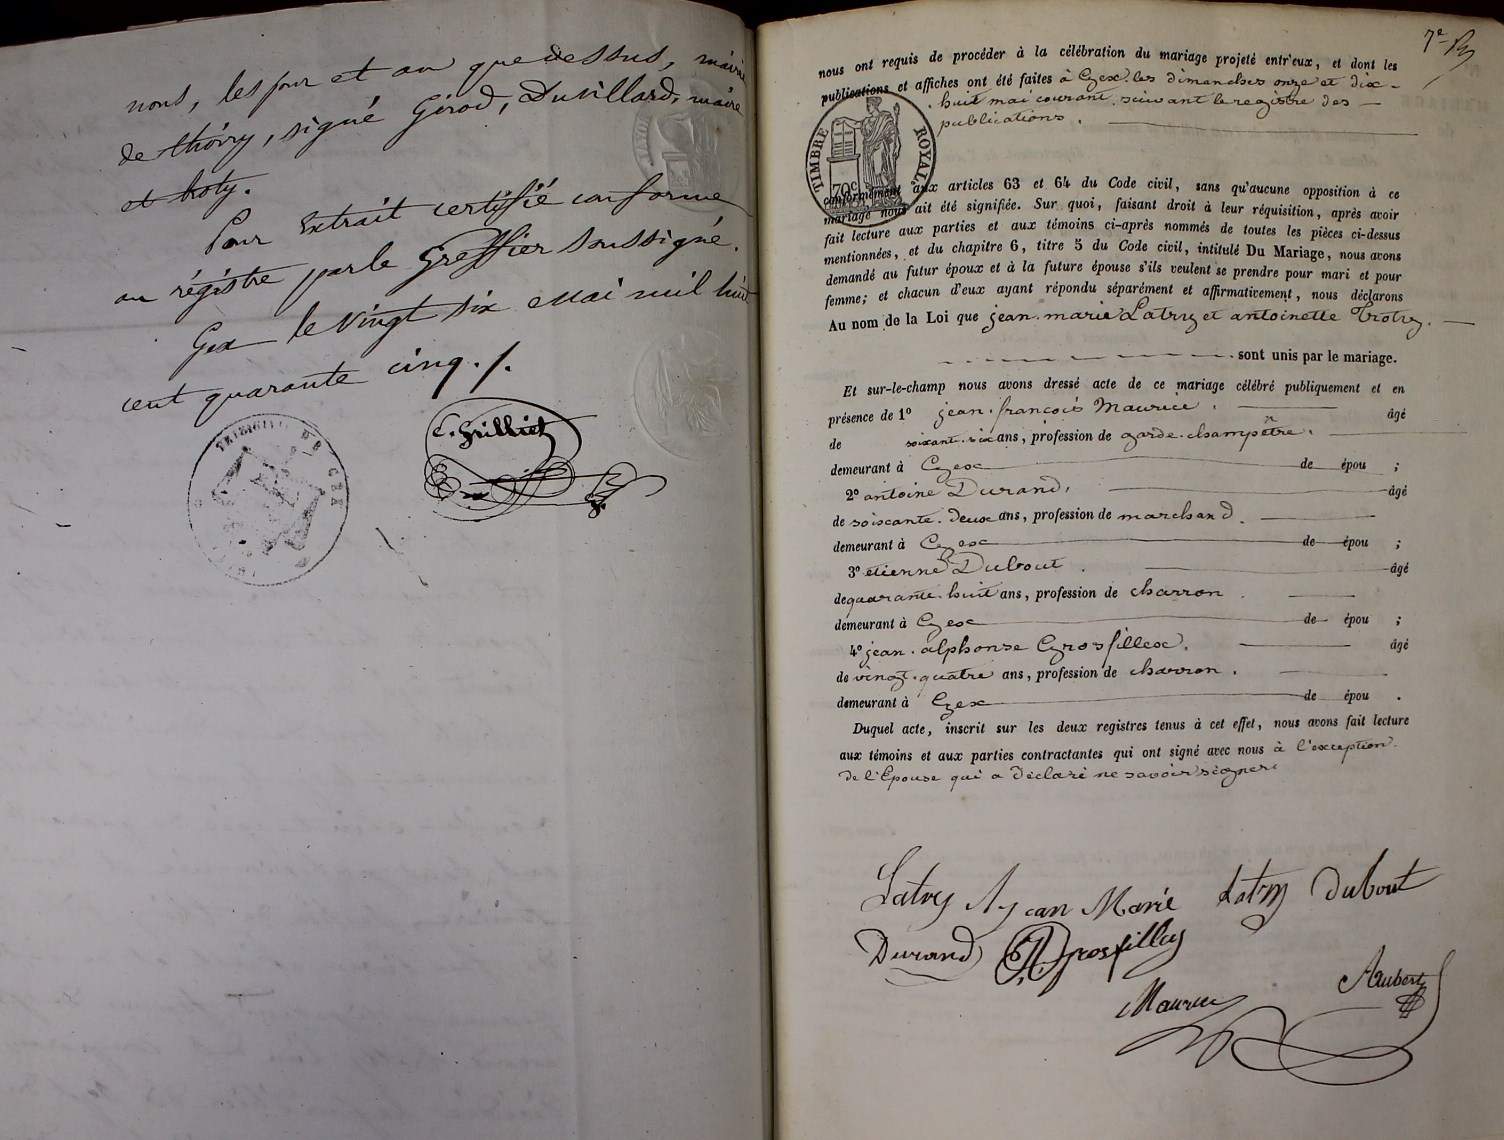 nous, les jour et an que dessus, mairie
de thoiry, signé Girod, Duvillard, maire
et
Pour Extrait certifié conforme
au régistre par le Greffier Soussigné.
Gex le vingt six Mai mil huit
cent quarante cinq./.
C. Grilliet
TRIBUNAL DE GEX
7e
nous ont requis de procéder à la célébration du mariage projeté entr'eux, et dont les
publications et affiches ont été faites à Gex les dimanches onze et dix-
huit mai courant, suivant le registre des
publications.
TIMBRE ROYAL
70c
conformément aux articles 63 et 64 du Code civil, sans qu'aucune opposition à ce
mariage nous ait été signifiée. Sur quoi, faisant droit à leur réquisition, après avoir
fait lecture aux parties et aux témoins ci-après nommés de toutes les pièces ci-dessus
mentionnées, et du chapitre 6, titre 5 du Code civil, intitulé Du Mariage, nous avons
demandé au futur époux et à la future épouse s'ils veulent se prendre pour mari et pour
femme; et chacun d'eux ayant répondu séparément et affirmativement, nous déclarons
Au nom de la Loi que jean-marie Latry et antoinette Trotry.
sont unis par le mariage.
Et sur-le-champ nous avons dressé acte de ce mariage célébré publiquement et en
présence de 1o jean-françois Maurice. âgé
de soixant-six ans, profession de garde-champêtre.
demeurant à Gex de épou ;
2o antoine Durand, âgé
de soixante-deux ans, profession de marchand.
demeurant à Gex de épou ;
3o etienne Dubout. âgé
de quarante-huit ans, profession de charron.
demeurant à Gex de épou ;
4o jean-alphonse Grosfillex. âgé
de vingt-quatre ans, profession de charron.
demeurant à Gex de épou .
Duquel acte, inscrit sur les deux registres tenus à cet effet, nous avons fait lecture
aux témoins et aux parties contractantes qui ont signé avec nous à l'exception
de l'Epouse qui a déclaré ne savoir signer
Latry jean Marie Latry Dubout
Durand Grosfillex
Maurice Aubert